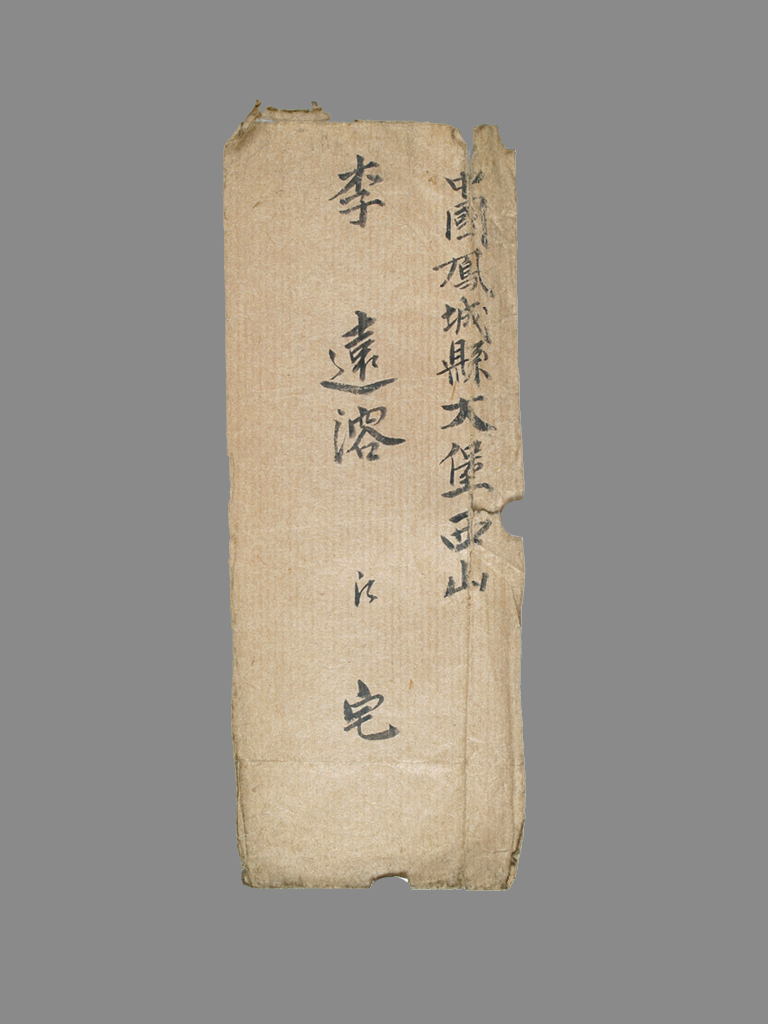 中國鳳城縣大堡西山
李遠溶氏宅